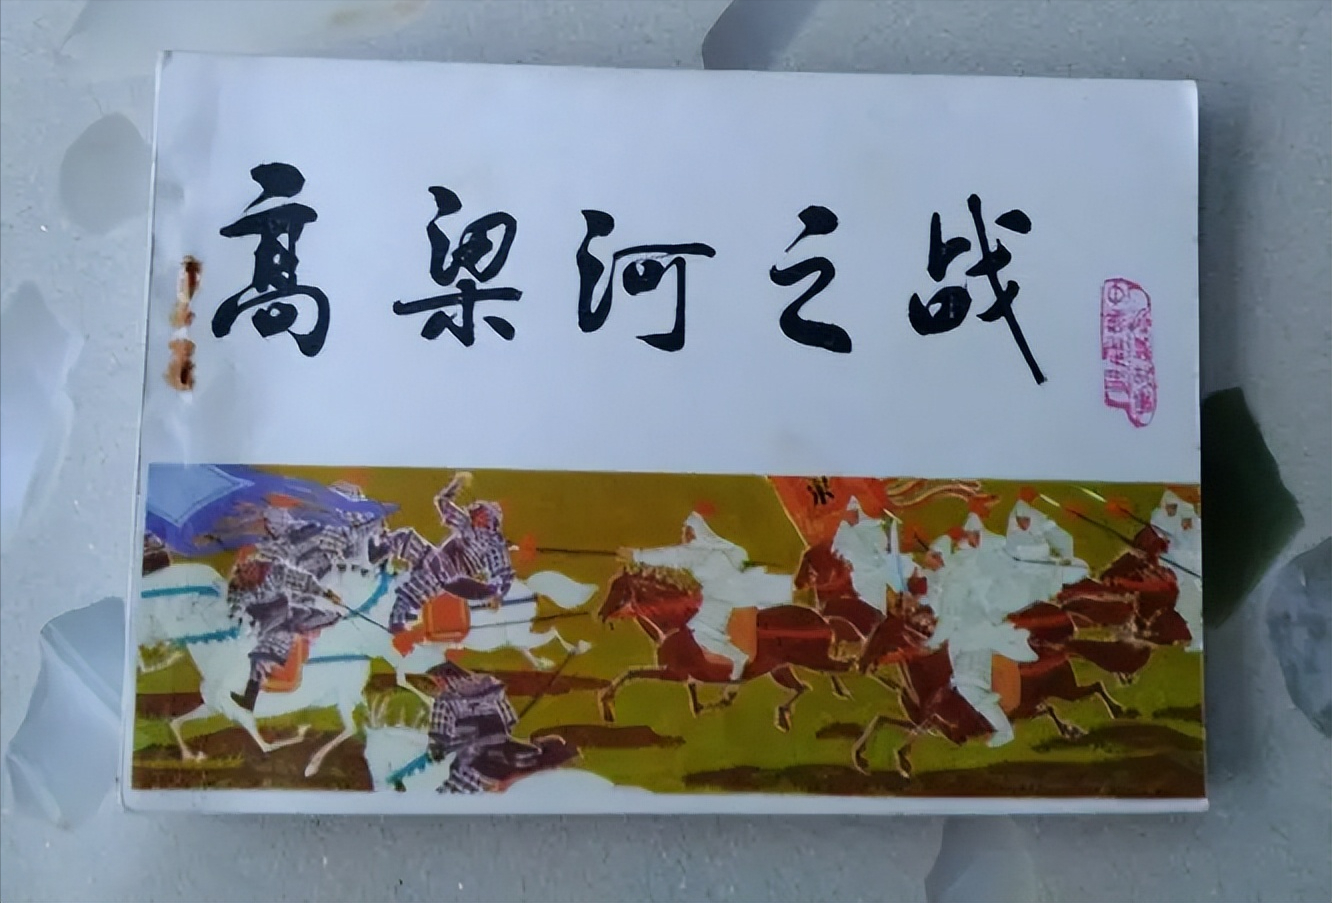 高梁河之战
宋